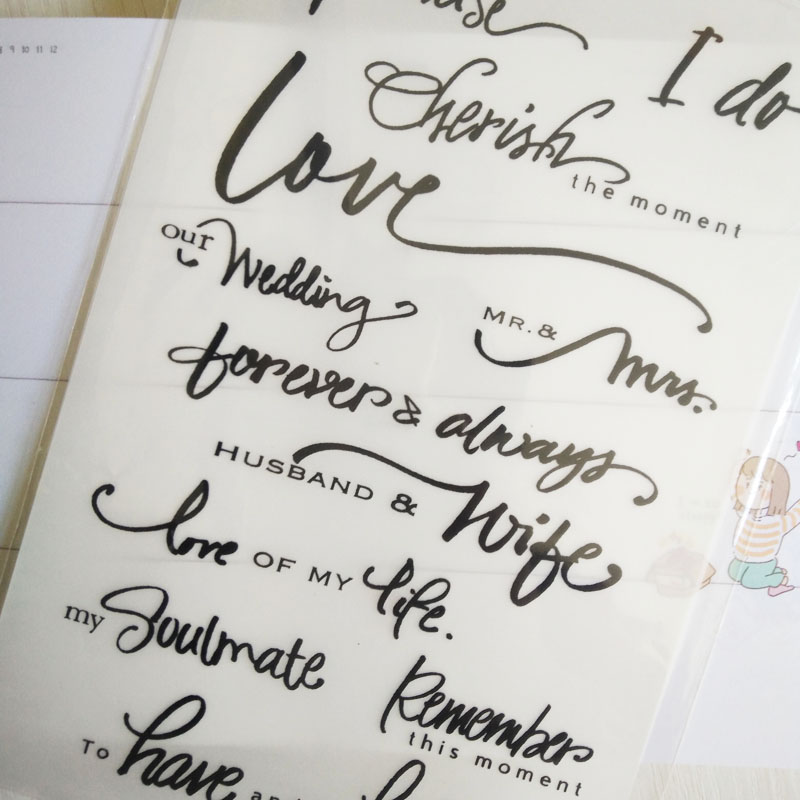 9 10 11 12
I do
Cherish
the moment
Love
our Wedding
MR. & Mrs.
forever & always
HUSBAND & Wife
love OF MY life.
my Soulmate
Remember
this moment
To have